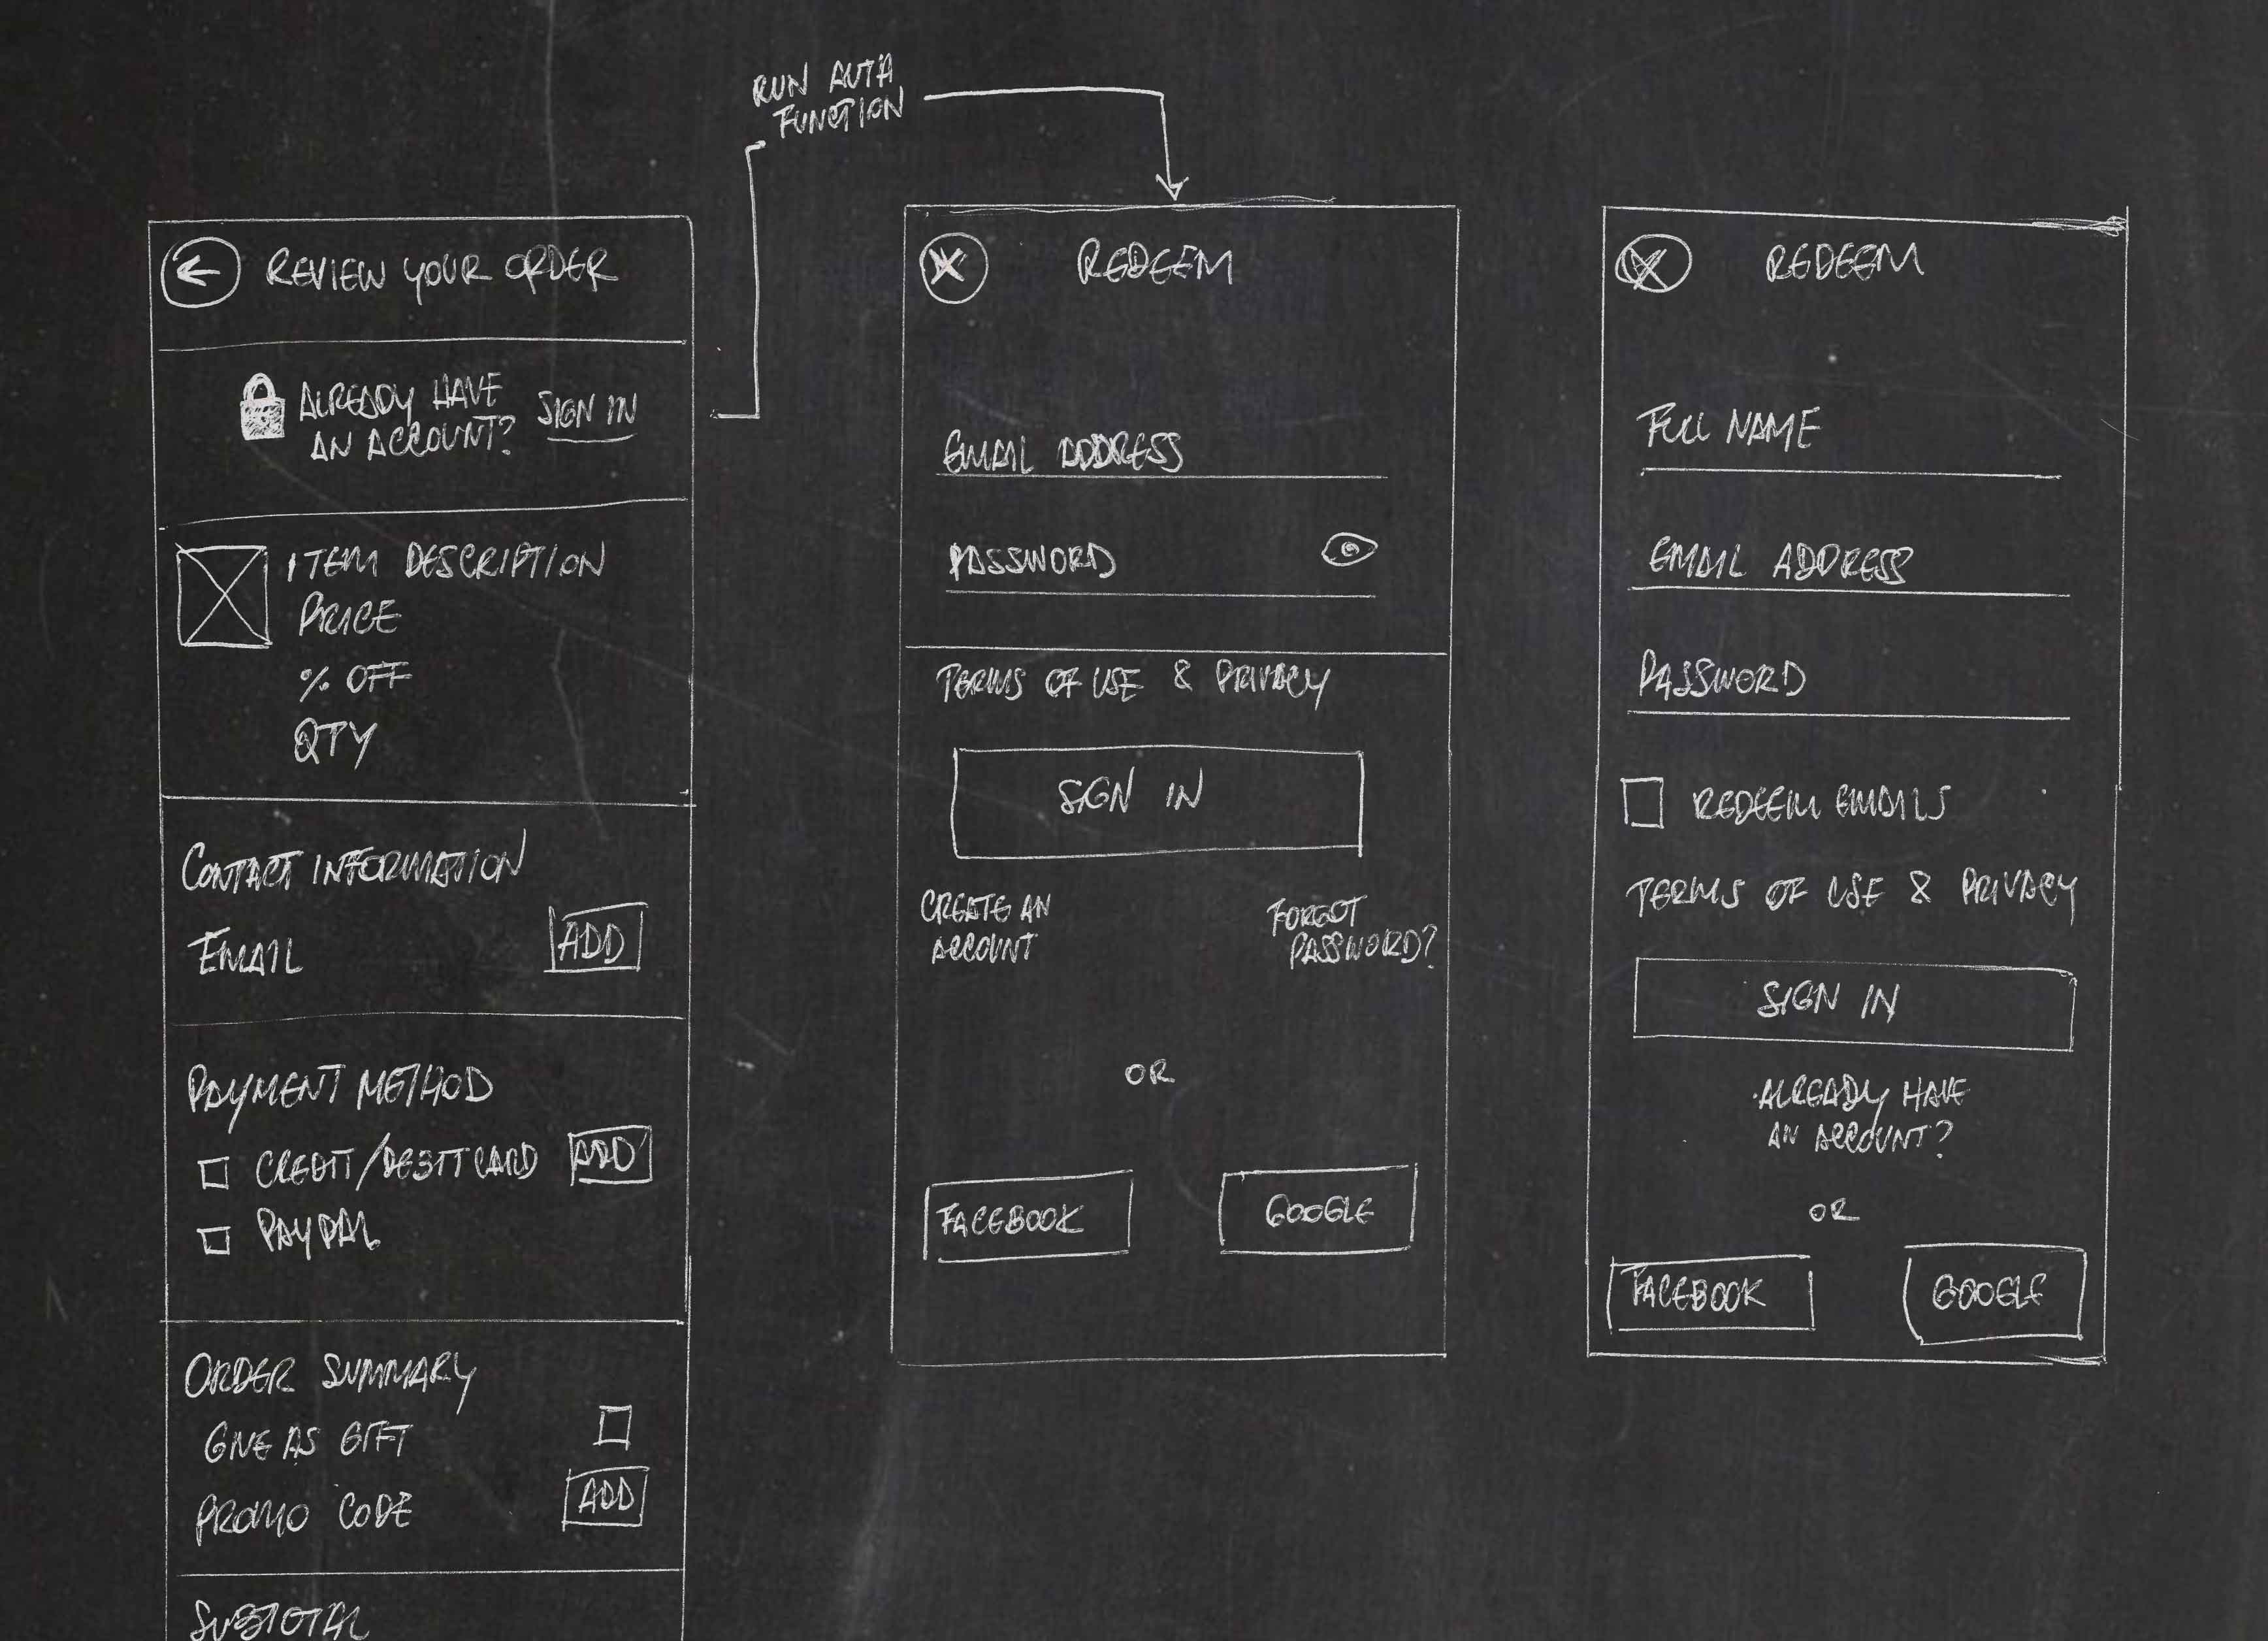 RUN AUTH
FUNCTION
REVIEW YOUR ORDER
ALREADY HAVE
AN ACCOUNT?
SIGN IN
ITEM DESCRIPTION
PRICE
% OFF
QTY
CONTACT INFORMATION
EMAIL
ADD
PAYMENT METHOD
CREDIT/DEBIT CARD
ADD
PAYPAL
ORDER SUMMARY
GIVE AS GIFT
PROMO CODE
ADD
SUBTOTAL
REDEEM
EMAIL ADDRESS
PASSWORD
TERMS OF USE & PRIVACY
SIGN IN
CREATE AN
ACCOUNT
FORGOT
PASSWORD?
OR
FACEBOOK
GOOGLE
REDEEM
FULL NAME
EMAIL ADDRESS
PASSWORD
REDEEM EMAILS
TERMS OF USE & PRIVACY
SIGN IN
ALREADY HAVE
AN ACCOUNT?
OR
FACEBOOK
GOOGLE